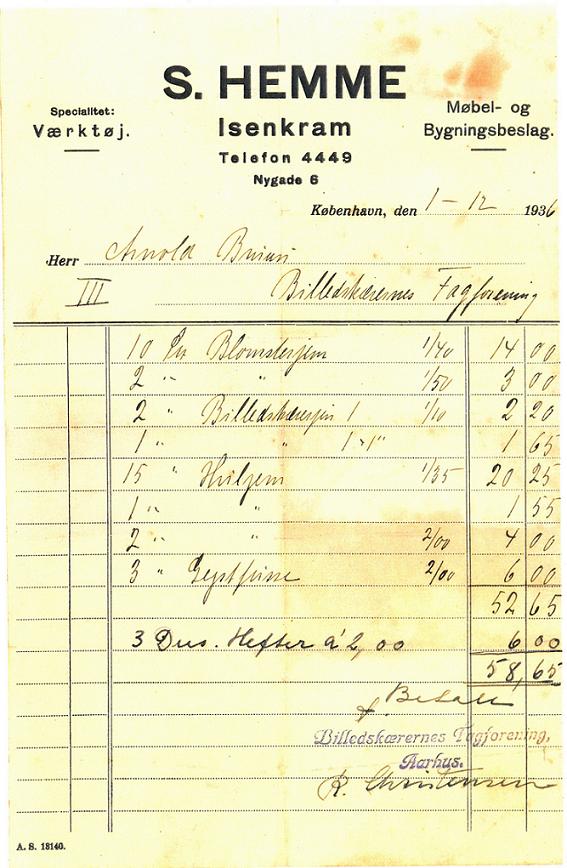 S. HEMME
Specialitet:
Værktøj.
Isenkram
Møbel- og
Bygningsbeslag.
Telefon 4449
Nygade 6
København, den 1-12 1936
Herr Arnold
III Billedskærernes Fagforening
10 1/40 14 00
2 " " 1/50 3 00
2 " Billedskærerjern 1 1/10 2 20
1 " " 1 65
15 " Huljern 1/35 20 25
1 " " 1 55
2 " " 2/00 4 00
3 " 2/00 6 00
52 65
3 Dus. Hefter á 2,00 6 00
58,65
Betalt
Billedskærernes Fagforening,
Aarhus.
K. Christensen
A. S. 18140.